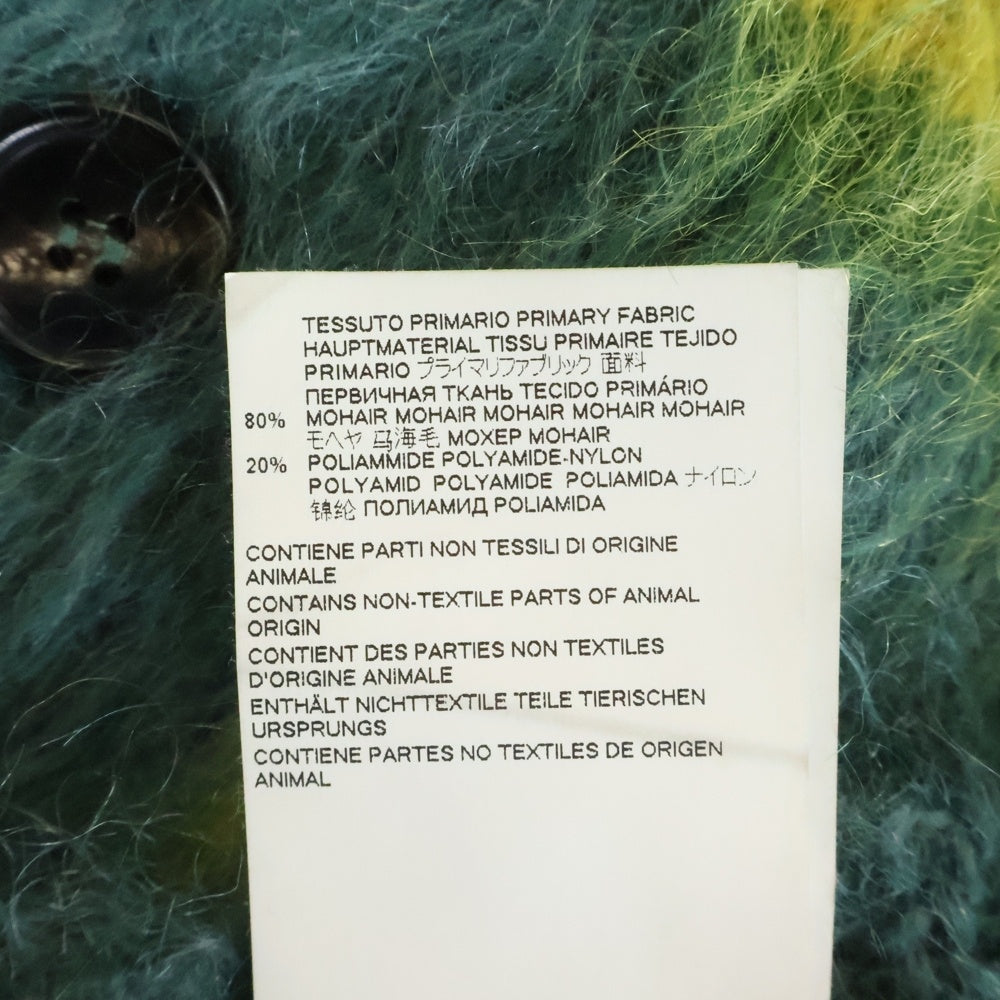 TESSUTO PRIMARIO PRIMARY FABRIC
HAUPTMATERIAL TISSU PRIMAIRE TEJIDO
PRIMARIO プライマリファブリック 面料
ПЕРВИЧНАЯ ТКАНЬ TECIDO PRIMÁRIO
80% MOHAIR MOHAIR MOHAIR MOHAIR MOHAIR
モヘヤ 马海毛 МОХЕР MOHAIR
20% POLIAMMIDE POLYAMIDE-NYLON
POLYAMID POLYAMIDE POLIAMIDA ナイロン
锦纶 ПОЛИАМИД POLIAMIDA
CONTIENE PARTI NON TESSILI DI ORIGINE
ANIMALE
CONTAINS NON-TEXTILE PARTS OF ANIMAL
ORIGIN
CONTIENT DES PARTIES NON TEXTILES
D'ORIGINE ANIMALE
ENTHÄLT NICHTTEXTILE TEILE TIERISCHEN
URSPRUNGS
CONTIENE PARTES NO TEXTILES DE ORIGEN
ANIMAL